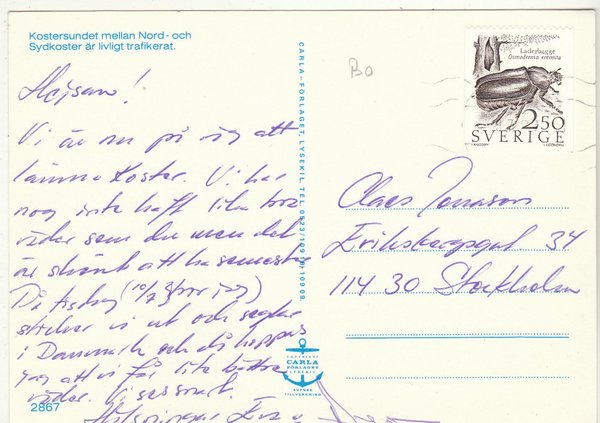 Kostersundet mellan Nord - och
Sydkoster är livligt trafikerat.
Hejsan!
Vi är nu på väg att
lämna Koster. Vi har
nog inte haft lika bra
väder som du men det
är skönt att ha semester
På tisdag (10/7
sticker vi ut och seglar
i Danmark och då hoppas
jag att vi får lite bättre
väder. Vi ses snart.
Hälsningar
2867
CARLA-FÖRLAGET, LYSEKIL, TEL. 0523/
COPYRIGHT
CARLA
FÖRLAGET
LYSEKIL
SVENSK
TILLVERKNING
BO
Läderbagge
Osmoderma eremita
2.50
SVERIGE
Claes Jonason
Eriksbergsgat. 34
114 30 Stockholm